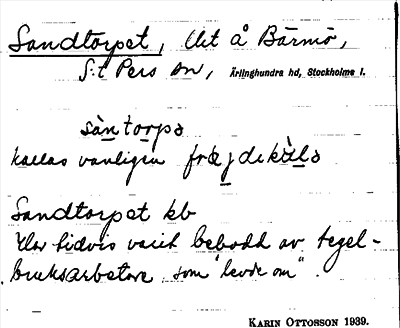 Sandtorpet, Utt å Bärmö,
S:t Pers sn, Ärlinghundra hd, Stockholms l.
sàntorpə
kallas vanligen
Sandtorpet kb
Har tidvis varit bebodd av tegel-
bruksarbetare som "levde om".
KARIN OTTOSSON 1939.